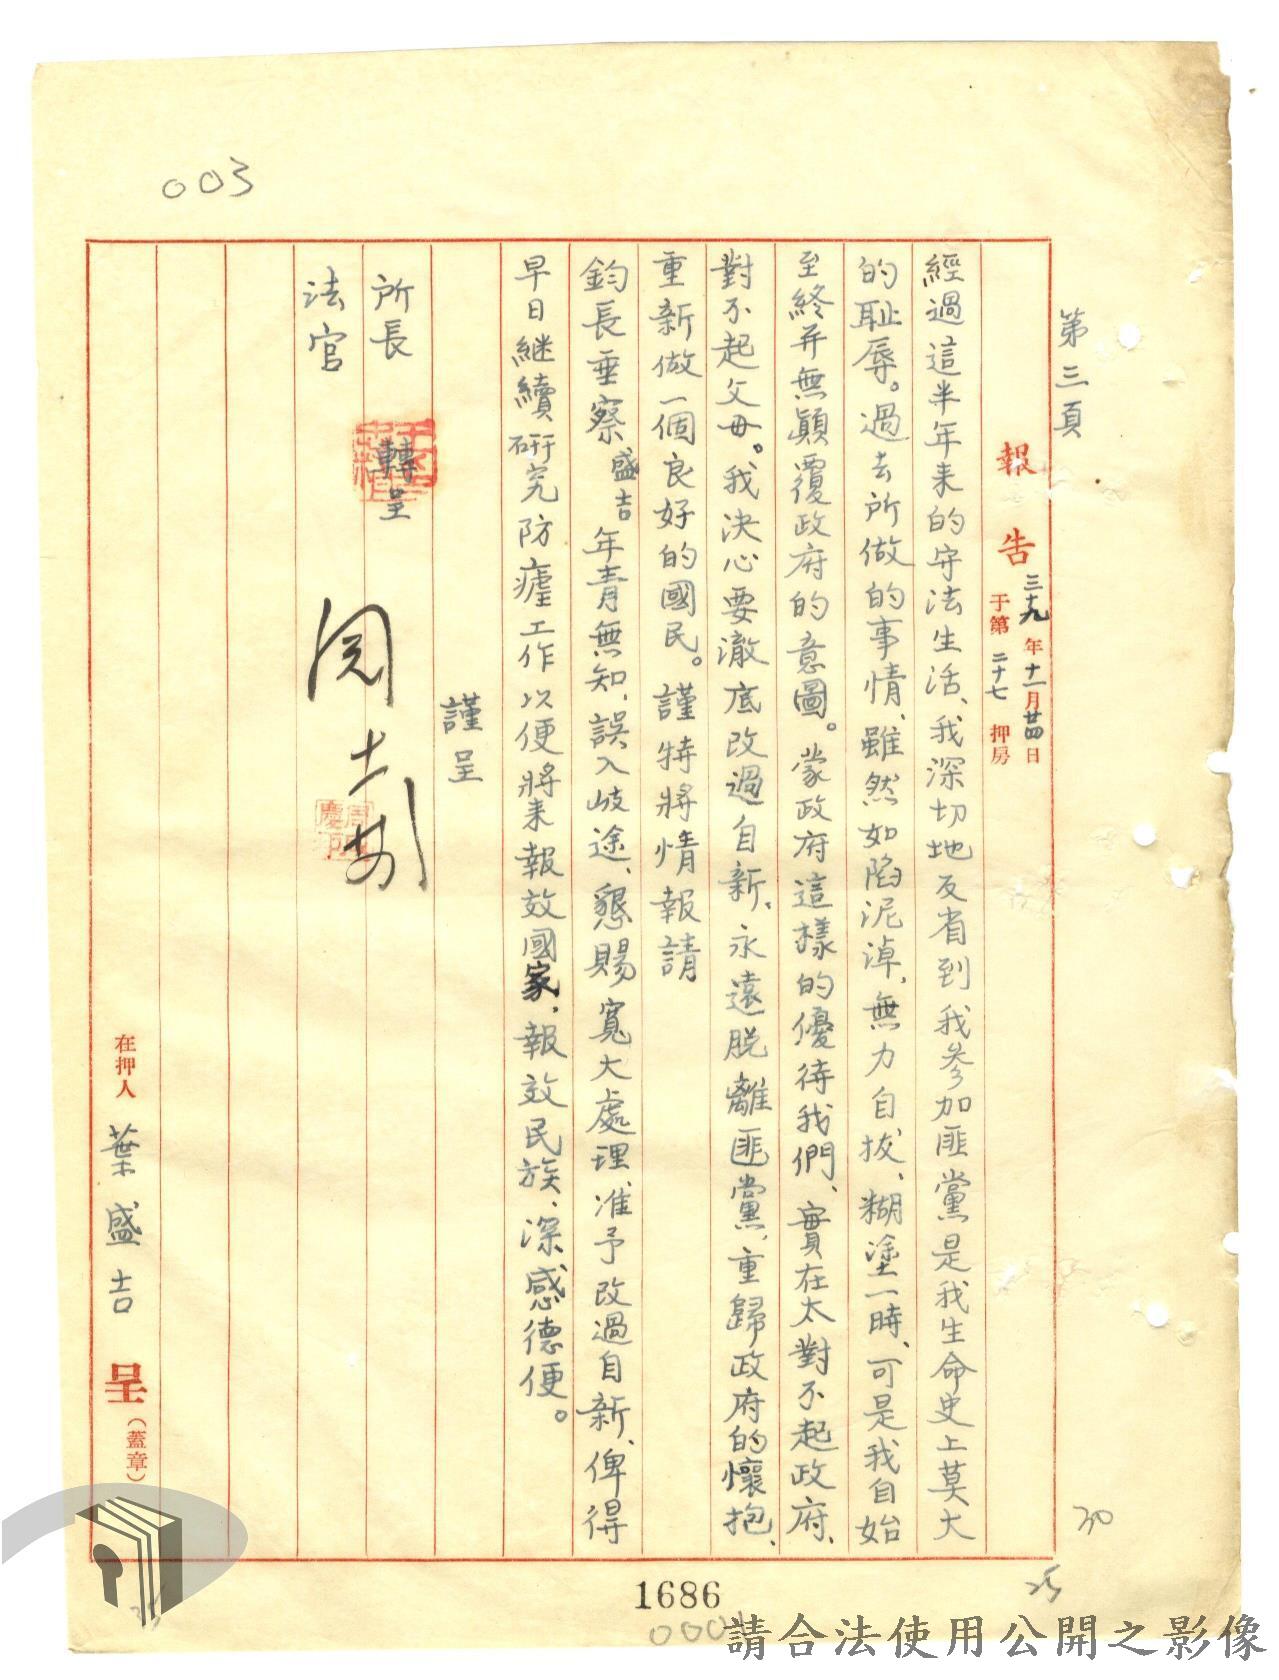 003
第三頁
報告 三十九年十一月廿四日
于第二十七押房
經過這半年來的守法生活、我深切地反省到我參加匪黨是我生命史上莫大
的耻辱。過去所做的事情、雖然如陷泥淖、無力自拔、糊塗一時、可是我自始
至終并無顛覆政府的意圖。蒙政府這樣的優待我們、實在太對不起政府、
對不起父母。我決心要澈底改過自新、永遠脫離匪黨、重歸政府的懷抱、
重新做一個良好的國民。謹特將情報請
鈞長垂察盛吉年青無知、誤入歧途、懇賜寬大處理、准予改過自新、俾得
早日継續研究防瘧工作以便將来報效國家、報效民族、深感德便。
謹呈
所長 轉呈
法官
在押人 葉盛吉 呈(蓋章)
30
25
1686
請合法使用公開之影像